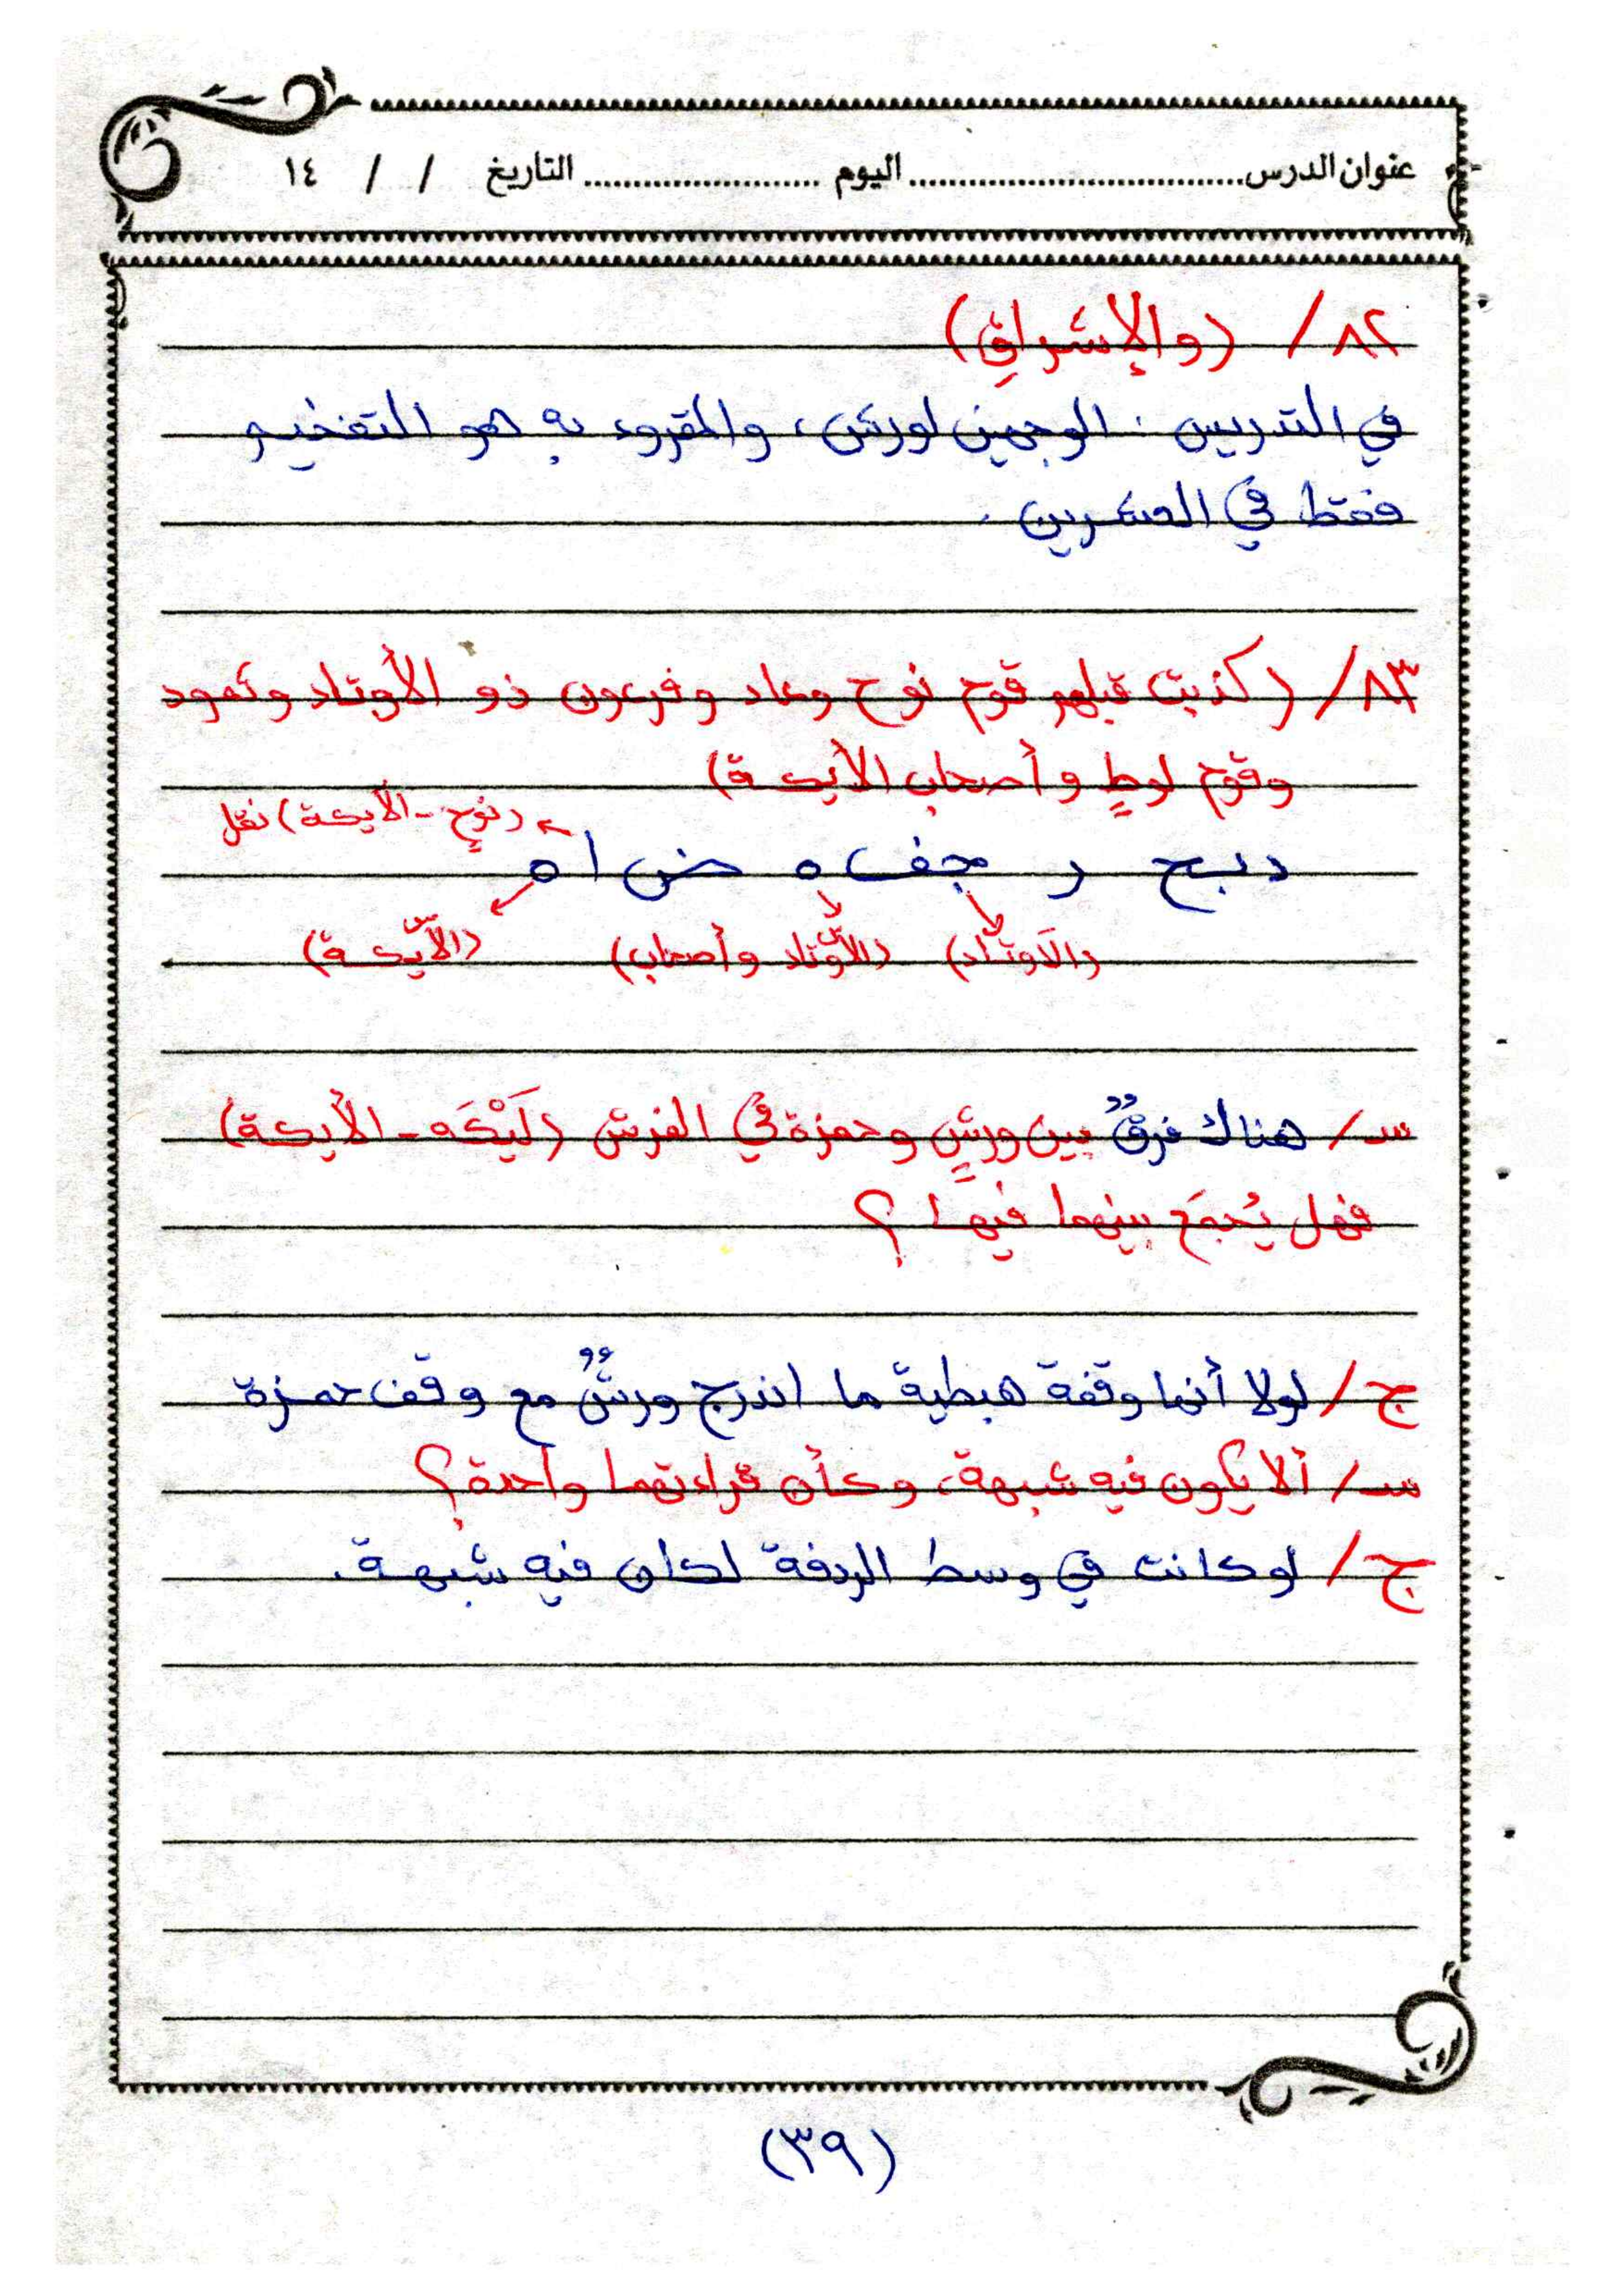 عنوان الدرس.................................. اليوم ........................ التاريخ / / ١٤
٨٢/ (والإشراقِ)
في التدريس : الوجهين لورش، والمقروء به هو التفخيم
فقط في العشرين .
٨٣/ (كذبت قبلهم قوم نوح وعاد وفرعون ذو الأوتاد وثمود
وقوم لوطٍ وأصحاب الأيكة)
(نوحٍ - الأيكة) نقل
دبح ر جف ه ض ا ه
(الأوتاد) (الأوتاد وأصحاب) (الأيكة)
س/ هناك فرقٌ بين ورشٍ وحمزة في الفرش (لَيْكَه - الأيكة)
فهل يُجمَع بينهما فيها ؟
ج/ لولا أنها وقفة هبطية ما اندرج ورشٌ مع وقف حمزة
س/ ألا يكون فيه شبهة، وكأن قراءتهما واحدة؟
ج/ لو كانت في وسط الردفة لكان فيه شبهة.
(٣٩)